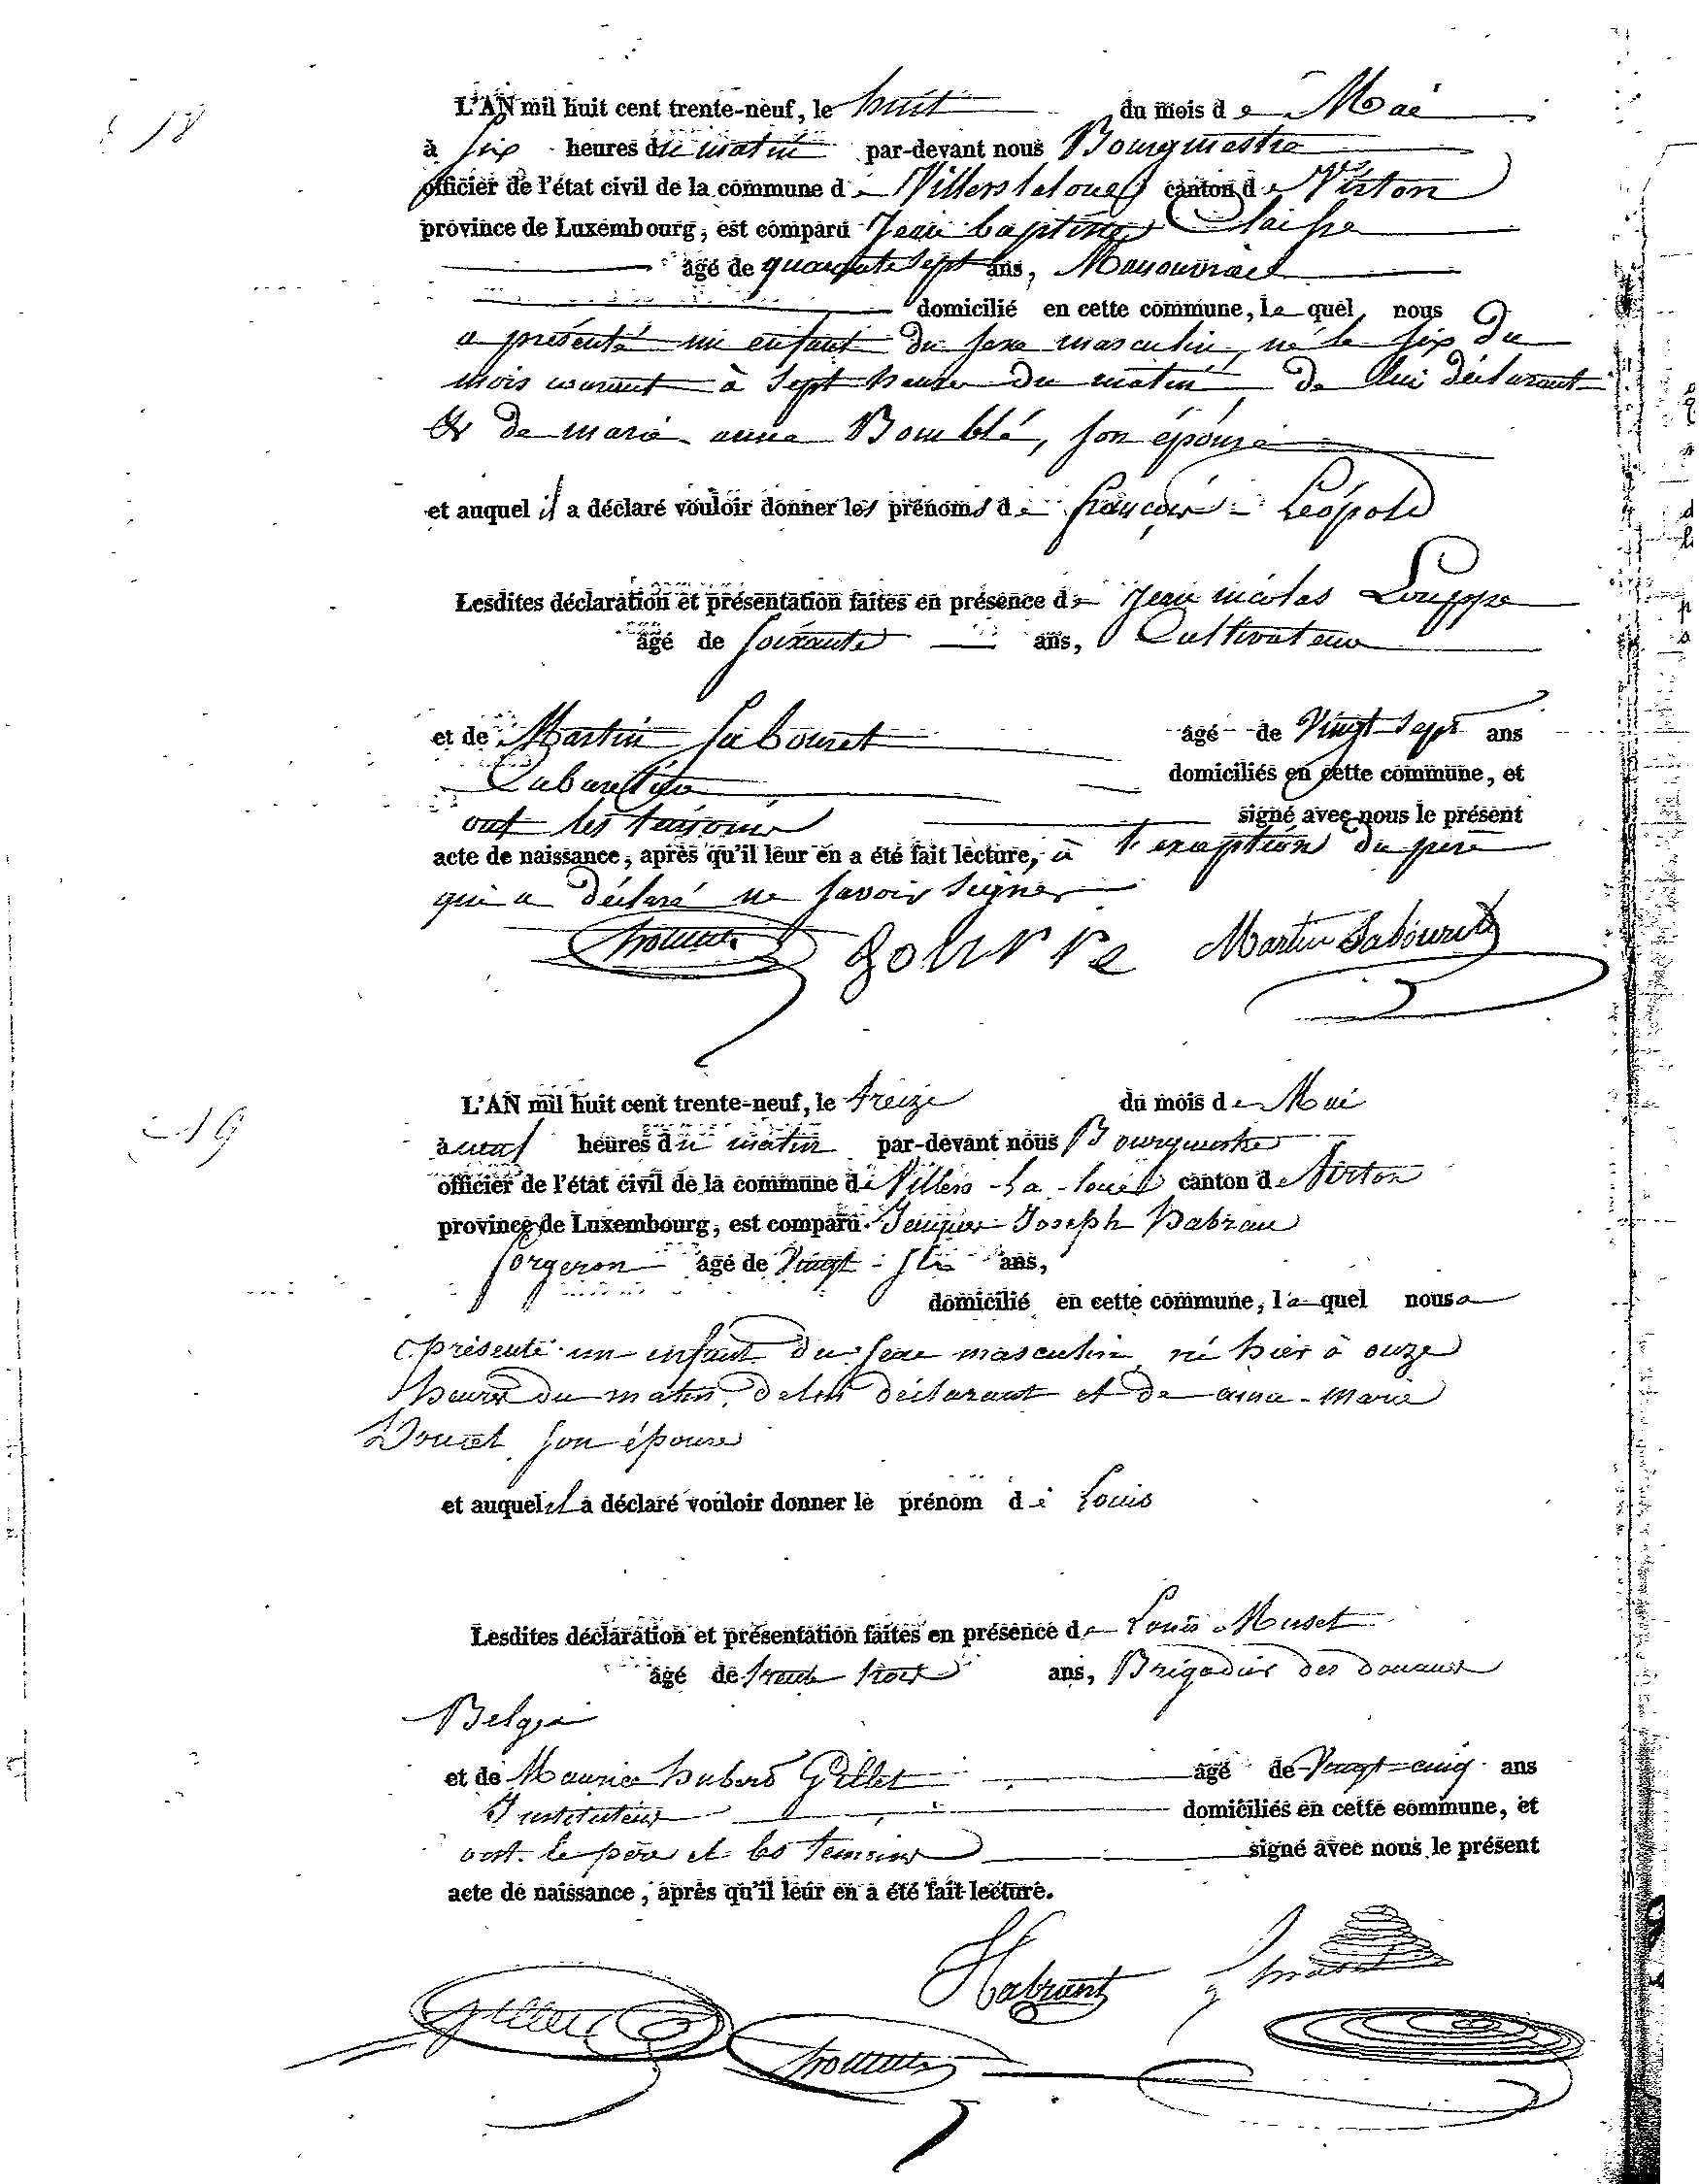 18
L'AN mil huit cent trente-neuf, le huit du mois de Mai
à six heures du matin par-devant nous Bourgmestre
officier de l'état civil de la commune de Villers la loue canton de Virton
province de Luxembourg, est comparu Jean baptiste
âgé de quarante sept ans, Manouvrier
domicilié en cette commune, le quel nous
a présenté un enfant du sexe masculin, né le six du
mois courant à sept heures du matin de lui déclarant
& de marie anne Bomblé, son épouse
et auquel il a déclaré vouloir donner les prénoms de françois - Léopold
Lesdites déclaration et présentation faites en présence de Jean nicolas Louppe
âgé de soixante ans, Cultivateur
et de Martin Sabouret âgé de Vingt-sept ans
Cabaretier domiciliés en cette commune, et
ont les témoins signé avec nous le présent
acte de naissance, après qu'il leur en a été fait lecture, à l'exception du père
qui a déclaré ne savoir signer
Martin Sabouret
19
L'AN mil huit cent trente-neuf, le treize du mois de Mai
à neuf heures du matin par-devant nous Bourgmestre
officier de l'état civil de la commune de Villers-la-loue canton de Virton
province de Luxembourg, est comparu Jacques Joseph habran
forgeron âgé de Vingt-six ans,
domicilié en cette commune, le quel nous a
présenté un enfant du sexe masculin né hier à onze
heures du matin, de lui déclarant et de anne-marie
son épouse
et auquel il a déclaré vouloir donner le prénom de Louis
Lesdites déclaration et présentation faites en présence de Louis Muset
âgé de trente trois ans, Brigadier des douanes
Belge
et de Maurice hubert Gillet âgé de Vingt-cinq ans
Instituteur domiciliés en cette commune, et
ont le père et les témoins signé avec nous le présent
acte de naissance, après qu'il leur en a été fait lecture.
Habrant
Gillet